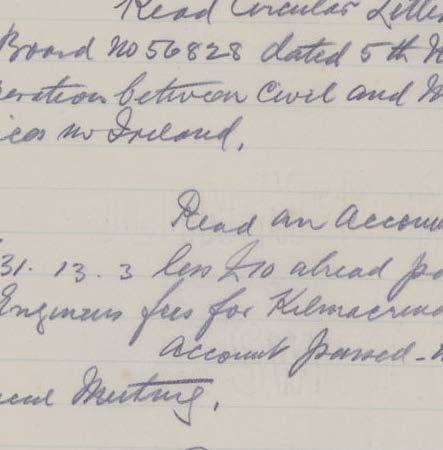 Read Circular Lette
Board No 56828 dated 5th N
eration between Civil and M
ices in Ireland.
Read an Accoun
31. 13. 3 less £10 alread pa
Engineers fees for Kilmacrena
Account passed -
Meeting.